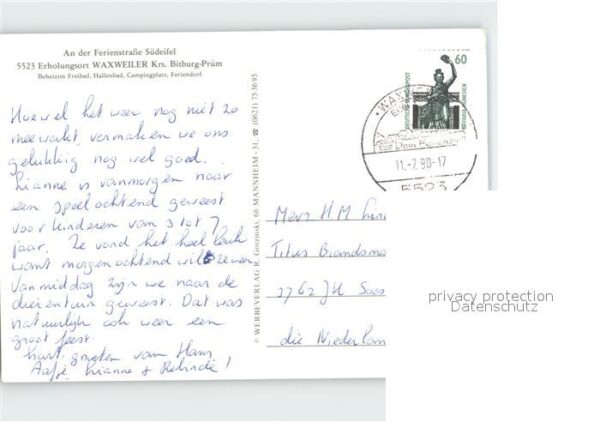 An der Ferienstraße Südeifel
5523 Erholungsort WAXWEILER Krs. Bitburg-Prüm
Beheiztes Freibad, Hallenbad, Campingplatz, Feriendorf
Hoewel het weer nog niet zo
meewerkt, vermaken we ons
gelukkig nog wel goed.
Lianne is vanmorgen naar
een speelochtend geweest
voor kinderen van 3 tot 7
jaar. Ze vond het heel leuk
want morgenochtend wil ze weer
Vanmiddag zijn we naar de
dierentuin geweest. Dat was
natuurlijk ook weer een
groot feest.
hart. groeten van Hans
Aafje, Lianne + Relinde!
© WERBEVERLAG R. Gorzinski, 68 MANNHEIM-31, ☎ (0621) 753695
60
DEUTSCHE BUNDESPOST
11.-7.90-17
5523
Mevr H M
Titus Brandsma
3762 JH Soes
die Niederlan
privacy protection
Datenschutz